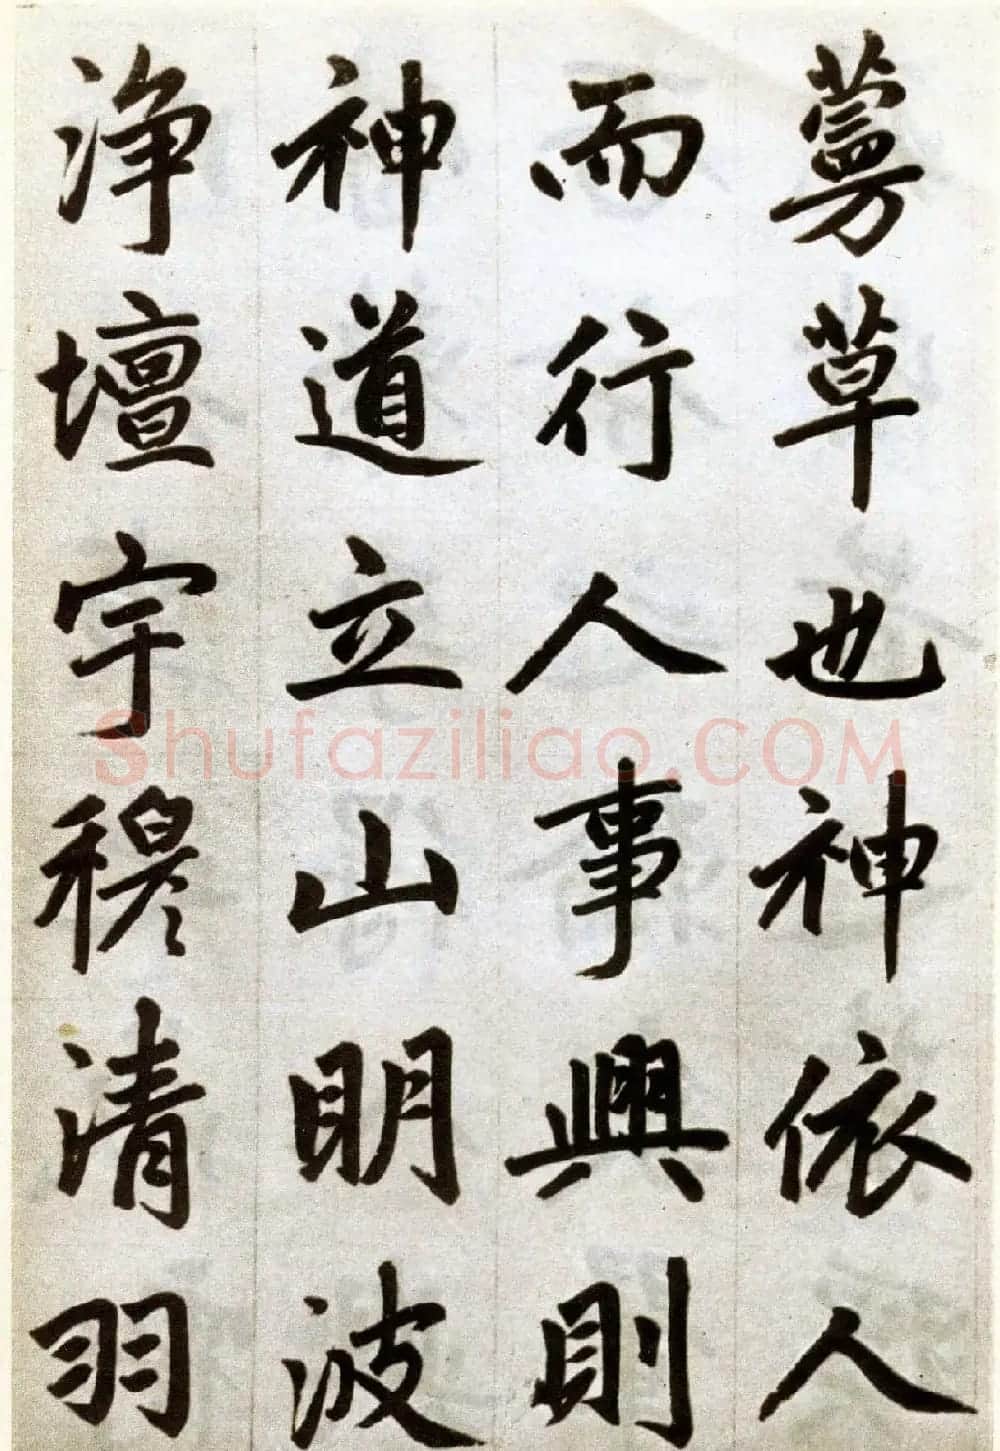 蔓草也神依人
而行人事興則
神道立山明波
淨壇宇穆清羽
Shufaziliao.COM